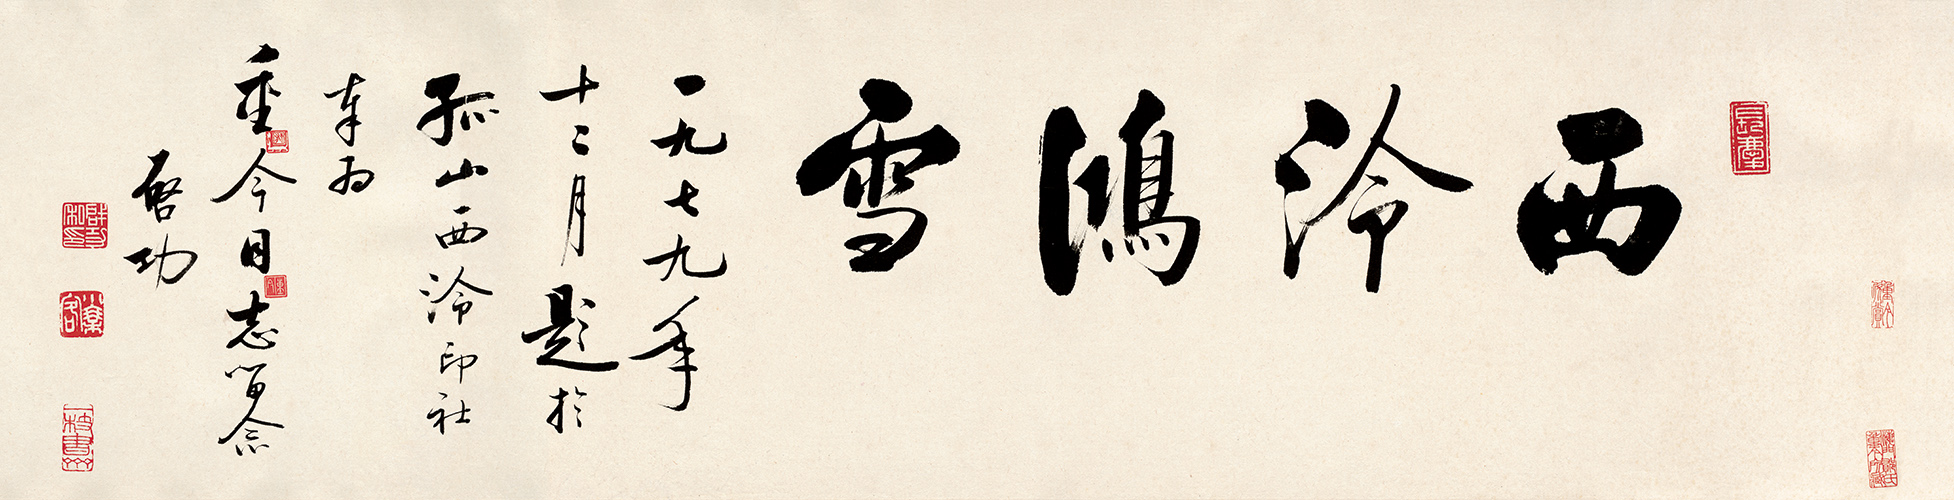 西泠鴻雪
一九七九年
十二月題於
孤山西泠印社
奉為
重今同志留念
啓功